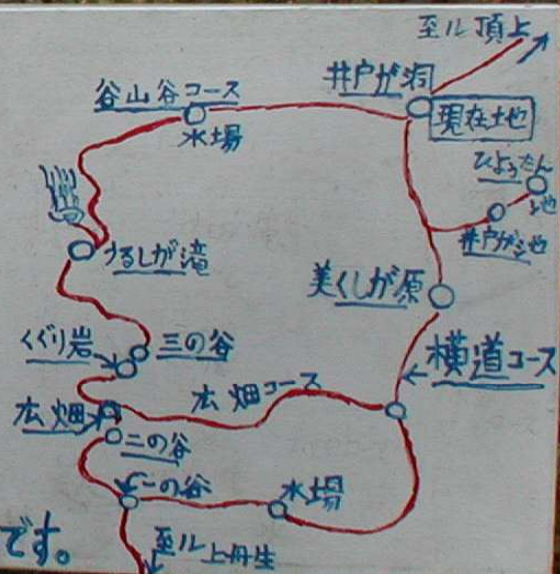 至ル頂上
井戸が洞
現在地
谷山谷コース
水場
ひょうたん
池
井戸が池
うるしが滝
美くしが原
くぐり岩
三の谷
横道コース
広畑コース
広畑
二の谷
一の谷
水場
至ル上丹生
です。